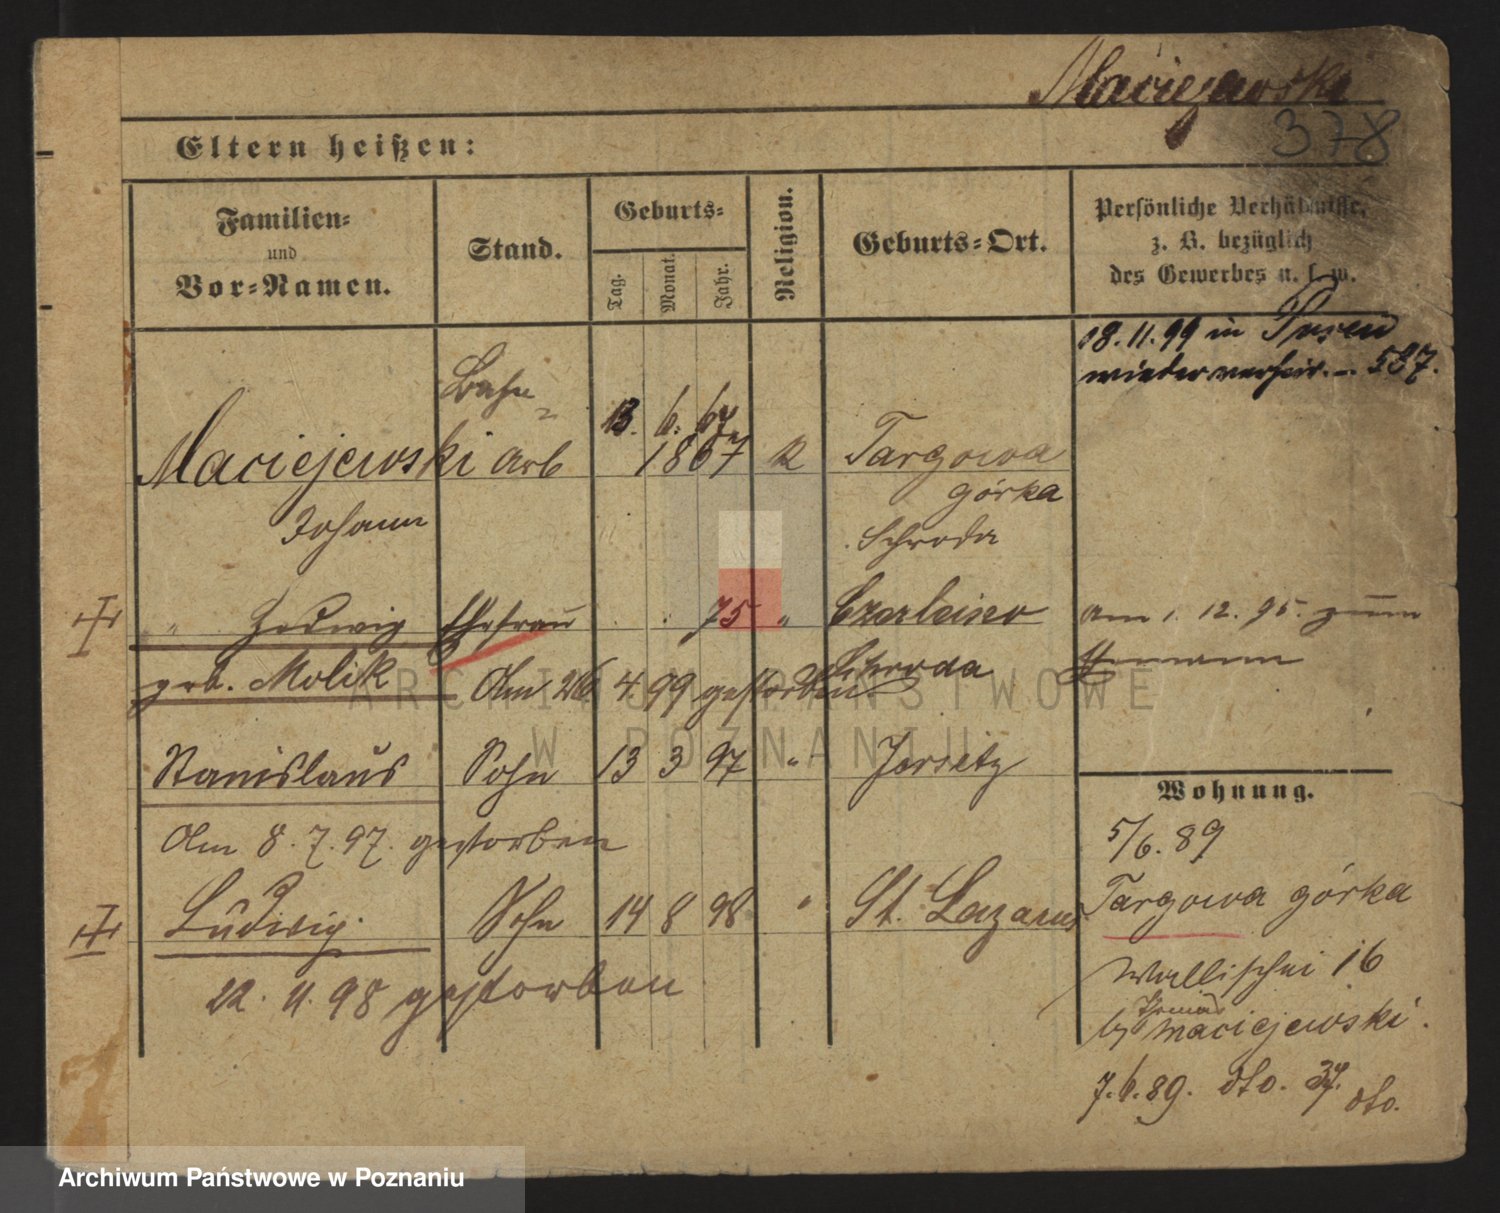 Maciejewski
378
Eltern heißen:
Familien= und Vor=Namen.
Stand.
Geburts=
Tag.
Monat.
Jahr.
Religion.
Geburts=Ort.
Persönliche Verhältnisse, z. B. bezüglich des Gewerbes u. s. w.
18.11.99 in Posen
wieder verheir. – 587.
Bahn=
13. 6. 67
Maciejewski arb 1867 K Targowa
górka
Johann Schroda
" Hedwig Ehefrau 75 " Czerleino am 1. 12. 95. zum
geb. Molik Schroda
Am 26. 4. 99 gestorben
Stanislaus Sohn 13 3 97 " Jersitz
Wohnung.
Am 8. 7. 97. gestorben
5/6. 89
Ludwig Sohn 14 8 98 " St. Lazarus
Targowa górka
22. 11. 98 gestorben
Wallischei 16
by Maciejewski.
7. 6. 89. dto. 37. dto.
ARCHIWUM PAŃSTWOWE
W POZNANIU
Archiwum Państwowe w Poznaniu